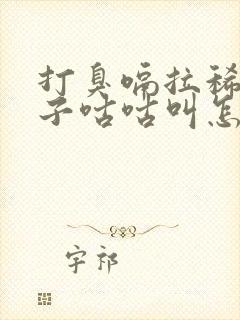 打臭嗝拉稀
子咕咕叫怎
宇祁